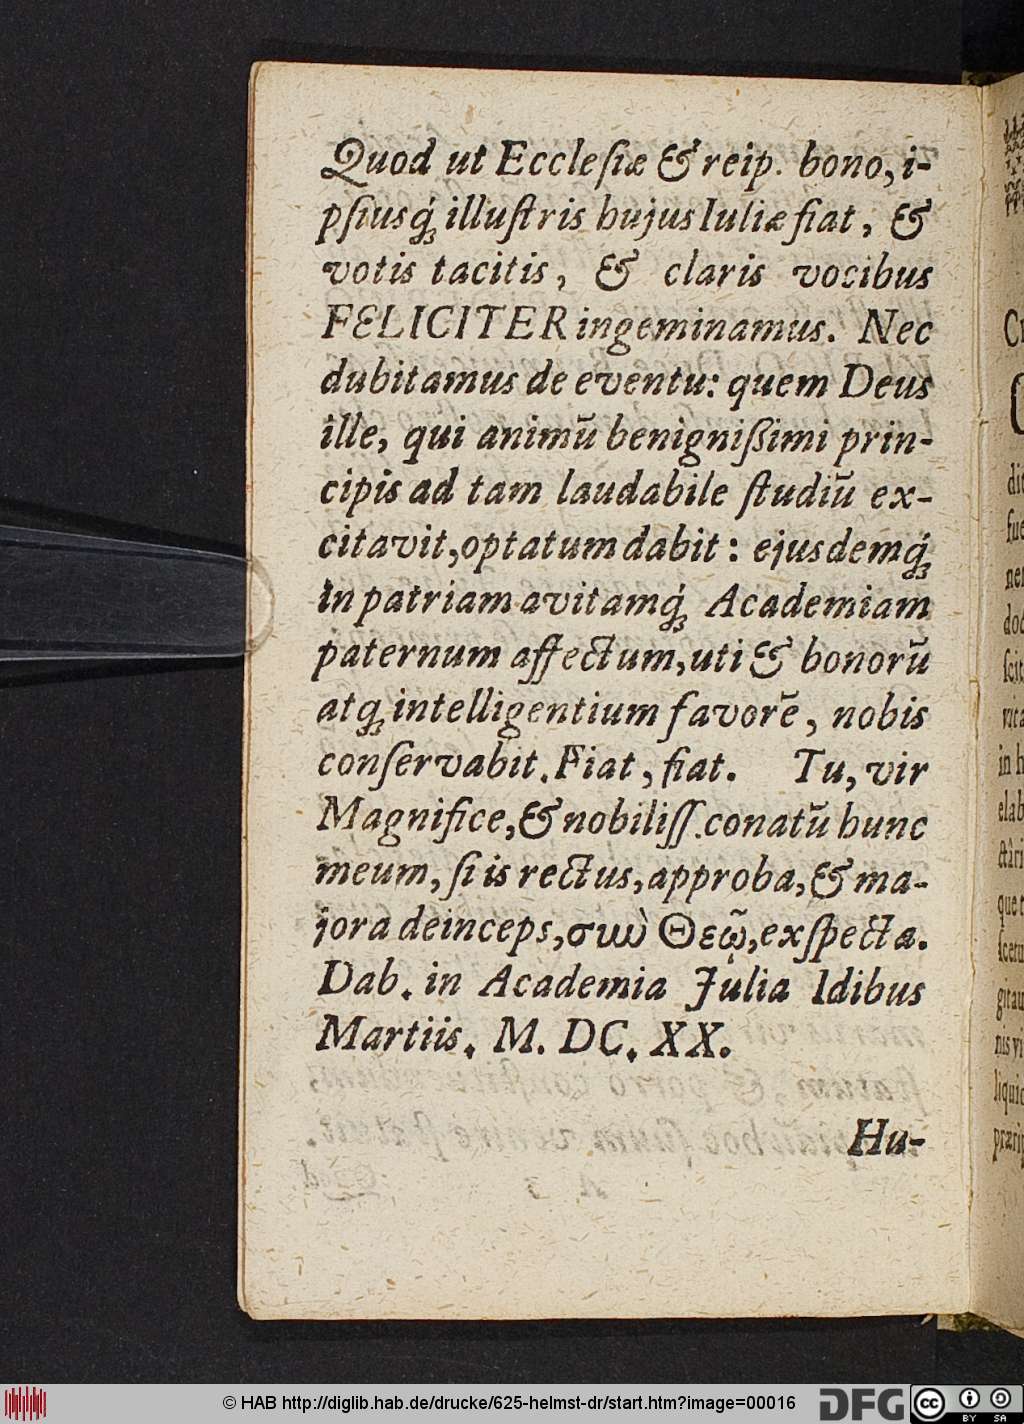 Quod ut Eccleſiæ & reip. bono, i-
pſiusq́ꝫ illuſtris hujus Iuliæ fiat, &
votis tacitis, & claris vocibus
FELICITER ingeminamus. Nec
dubitamus de eventu: quem Deus
ille, qui animū benignißimi prin-
cipis ad tam laudabile ſtudiū ex-
citavit, optatum dabit: ejusdemq́ꝫ
in patriam avitamq́ꝫ Academiam
paternum affectum, uti & bonorū
atqꝫ intelligentium favorē, nobis
conſervabit. Fiat, fiat. Tu, vir
Magnifice, & nobiliſſ. conatū hunc
meum, ſi is rectus, approba, & ma-
jora deinceps, σὺν Θεῷ, exſpecta.
Dab. in Academia Julia Idibus
Martiis. M. DC. XX.
Hu-
© HAB http://diglib.hab.de/drucke/625-helmst-dr/start.htm?image=00016
DFG
cc
BY SA